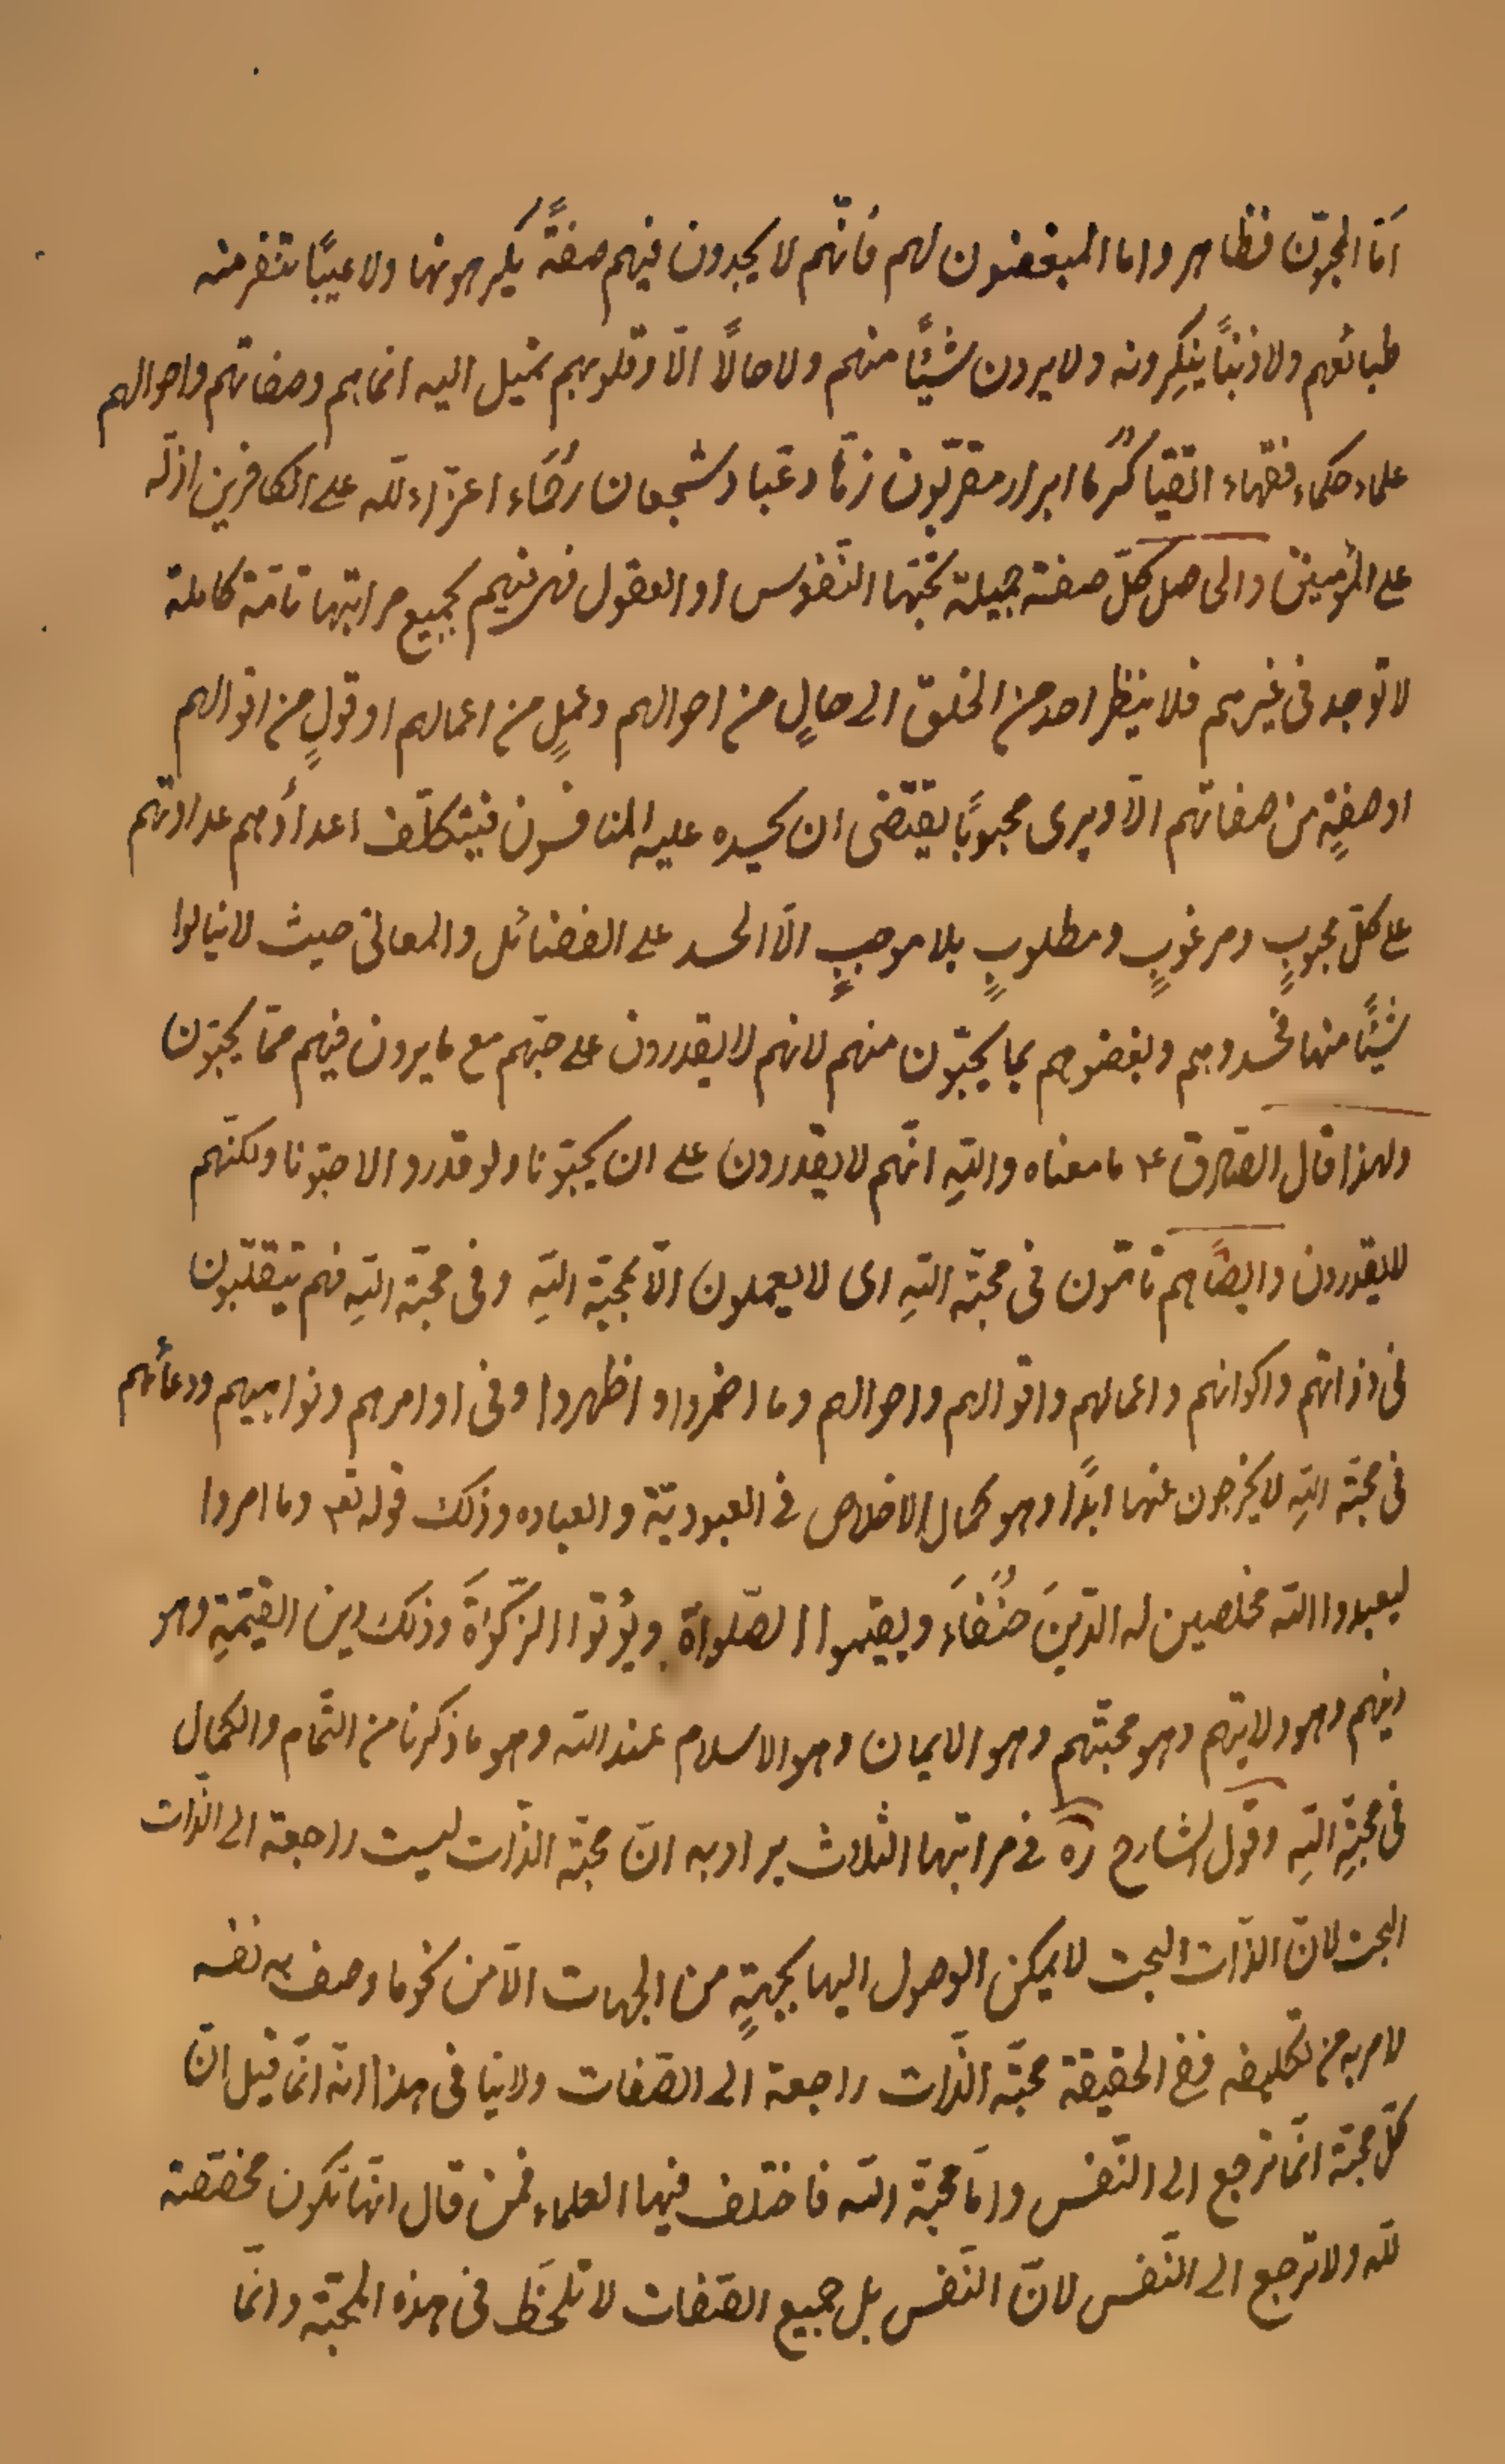 امّا المحبّون فظاهر واما المبغضون لهم فانّهم لا يجدون فيهم صفةً يكرهونها ولا عيبًا تنفر منه
طبائعهم ولا ذنبًا ينكِرونه ولا يرون شيئًا منهم ولا حالًا الّا وقلوبهم تميل اليه انماهم وصفاتهم واحوالهم
علماء حكماء فقهاء اتقيا كُرما ابرار مقرّبون زهّاد وعباد وشجعان رُحَماء اعزّاء لله على الكافرين اذلّة
على المؤمنين والحاصل كلّ صفة جميلة تحبّها النّفوس او العقول فهى فيهم بجميع مراتبها تامّة كاملة
لا توجد فى غيرهم فلا ينظر احد من الخلق الى حالٍ من احوالهم وعملٍ من اعمالهم او قولٍ من اقوالهم
او صفةٍ من صفاتهم الّا ويرى محبوبًا يقتضى ان يحسده عليه المنافسون فيتكلّف اعداؤهم عداوتهم
على كلّ محبوبٍ ومرغوبٍ ومطلوبٍ بلا موجبٍ الّا الحسد على الفضائل والمعالى حيث لا نيالوا
شيئًا منها فحسدوهم وبغضوهم بما يحبّون منهم لانهم لا يقدرون على حبّهم مع ما يرون فيهم ممّا يحبّون
ولهذا قال الصّادق ع ما معناه واللّهِ انّهم لا يقدرون على ان يحبّونا ولو قدروا لاحبّونا ولكنّهم
لا يقدرون وايضًا هم تامّون فى محبّة اللّهِ اى لا يعملون الّا بمحبّة اللّهِ وفى محبّة اللّهِ فهم يتقلّبون
فى ذواتهم واكوانهم واعمالهم واقوالهم واحوالهم وما اضمروا و اظهروا وفى اوامرهم ونواهيهم ودعائهم
فى محبّة اللّهِ لا يخرجون عنها ابدًا وهو كمال الاخلاص فى العبوديّة والعباده وذلك قوله تع وما امروا
ليعبدوا اللّه مخلصين له الدّينَ حنُفَاءَ ويقيموا الصّلواة ويُؤتوا الزّكواةَ وذلك دين القيّمةِ وهو
دينهم وهو ولايتهم وهو محبّتهم وهو الايمان وهو الاسلام عند اللّه وهو ما ذكرنا من التّمام والكمال
فى محبّةِ اللّهِ وقول الشارح ره فى مراتبها الثلاث يراد به انّ محبّة الذّات ليست راجعة الى الذّات
البحت لانّ الذّات البحت لا يمكن الوصول اليها بجهةٍ من الجهات الّا من نحو ما وصف به نفسه
لامر به من تكليفه ففى الحقيقة محبّة الذّات راجعة الى الصّفات ولا ينافى هذا انّه انّما قيل انّ
كلّ محبّة انّما ترجع الى النّفس وامّا محبّة اللّه فاختلف فيها العلماء فمن قال انّها تكون مخصّصة
للّه ولا ترجع الى النّفس لانّ النّفس بل جميع الصّفات لا تُلحَظ فى هذه المحبّة وانّما